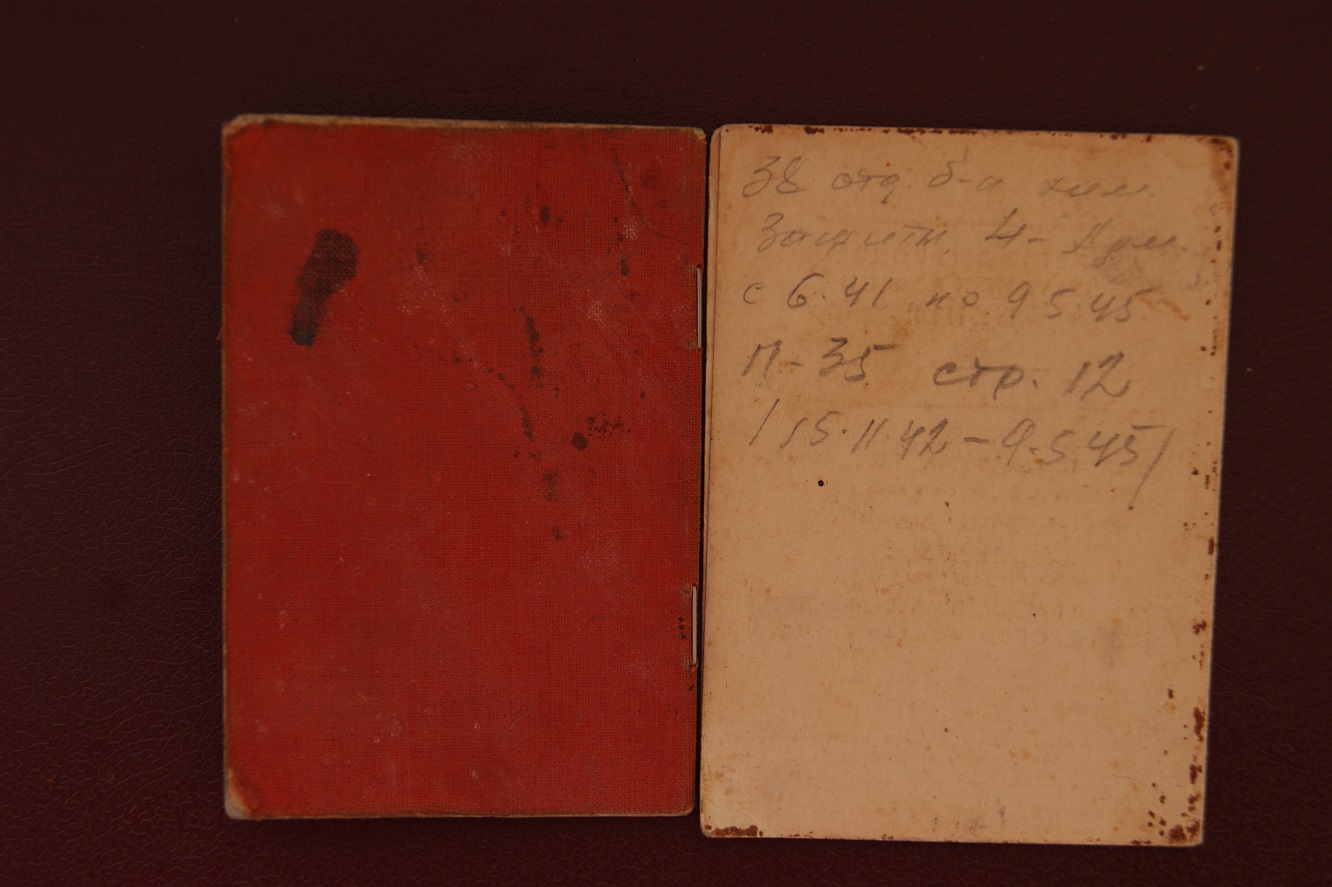 38 отд. б-н хим.
Защиты 4- Арм.
с 6.41 по 9.5.45
П-35 стр. 12
/15.11.42-9.5.45/